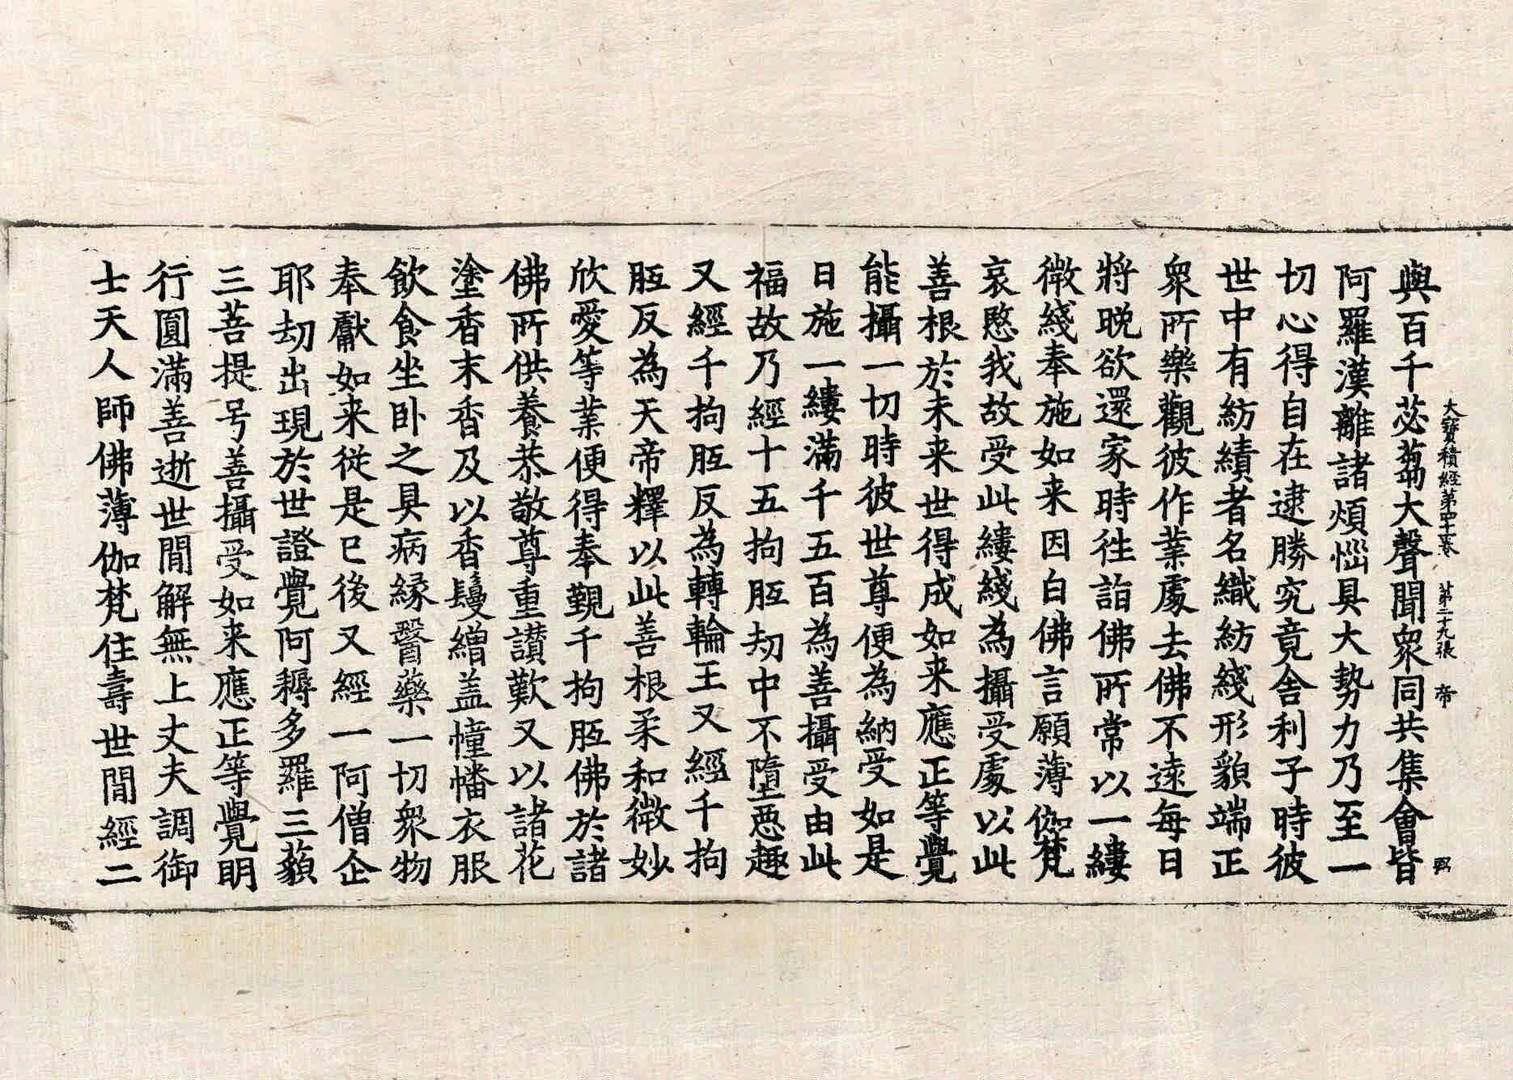 大寶積經第四十卷 第二十九張 帝
與百千苾蒭大聲聞眾同共集會皆
阿羅漢離諸煩惱具大勢力乃至一
切心得自在逮勝究竟舍利子時彼
世中有紡績者名織紡綫形貌端正
眾所樂觀彼作業處去佛不遠每日
將晚欲還家時徃詣佛所常以一縷
微綫奉施如来因白佛言願薄伽梵
哀愍我故受此縷綫為攝受處以此
善根於未来世得成如来應正等覺
能攝一切時彼世尊便為納受如是
日施一縷滿千五百為善攝受由此
福故乃經十五拘胝劫中不墮惡趣
又經千拘胝反為轉輪王又經千拘
胝反為天帝釋以此善根柔和微妙
欣愛等業便得奉覲千拘胝佛於諸
佛所供養恭敬尊重讃歎又以諸花
塗香末香及以香鬘繒盖幢幡衣服
飲食坐卧之具病緣醫藥一切眾物
奉獻如来從是已後又經一阿僧企
耶劫出現於世證覺阿耨多羅三藐
三菩提号善攝受如来應正等覺明
行圓滿善逝世間解無上丈夫調御
士天人師佛薄伽梵住壽世間經二